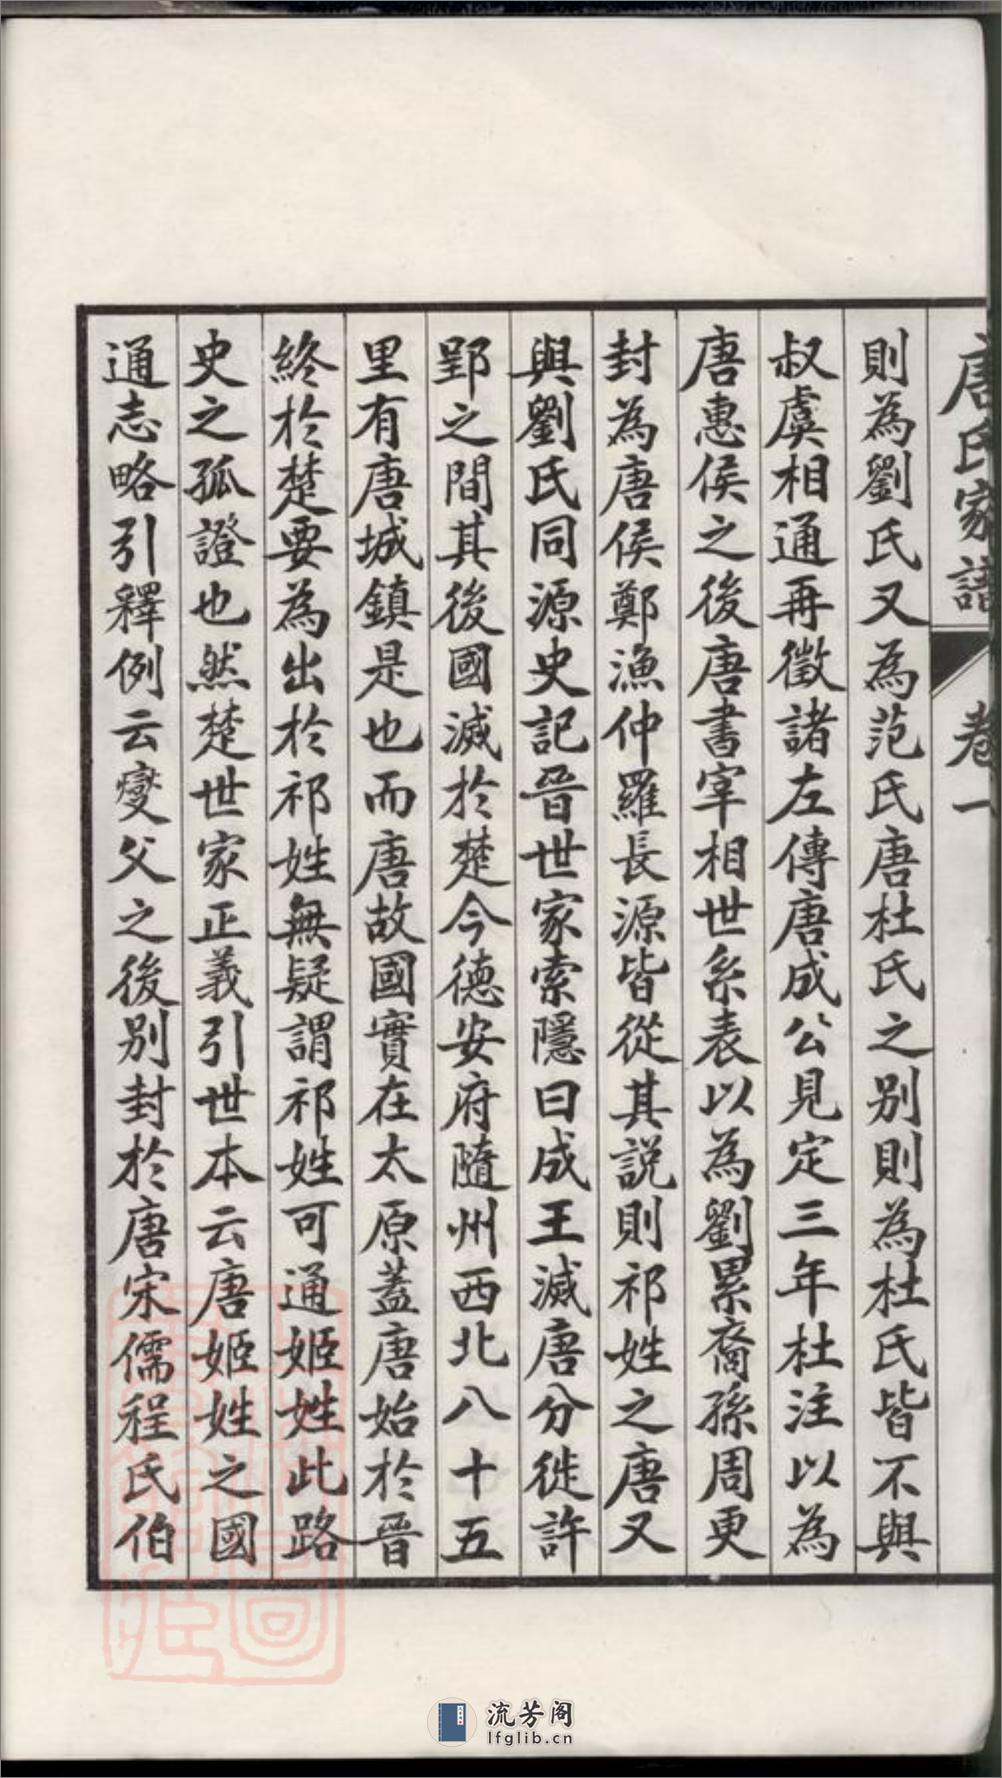 唐氏家譜 卷一
則為劉氏又為范氏唐杜氏之別則為杜氏皆不與
叔虞相通再徵諸左傳唐成公見定三年杜注以為
唐惠侯之後唐書宰相世系表以為劉累裔孫周更
封為唐侯鄭漁仲羅長源皆從其説則祁姓之唐又
與劉氏同源史記晉世家索隱曰成王滅唐分徙許
郢之間其後國滅於楚今德安府隨州西北八十五
里有唐城鎮是也而唐故國實在太原蓋唐始於晉
終於楚要為出於祁姓無疑謂祁姓可通姬姓此路
史之孤證也然楚世家正義引世本云唐姬姓之國
通志略引釋例云燮父之後別封於唐宋儒程氏伯
流芳阁
lfglib.cn